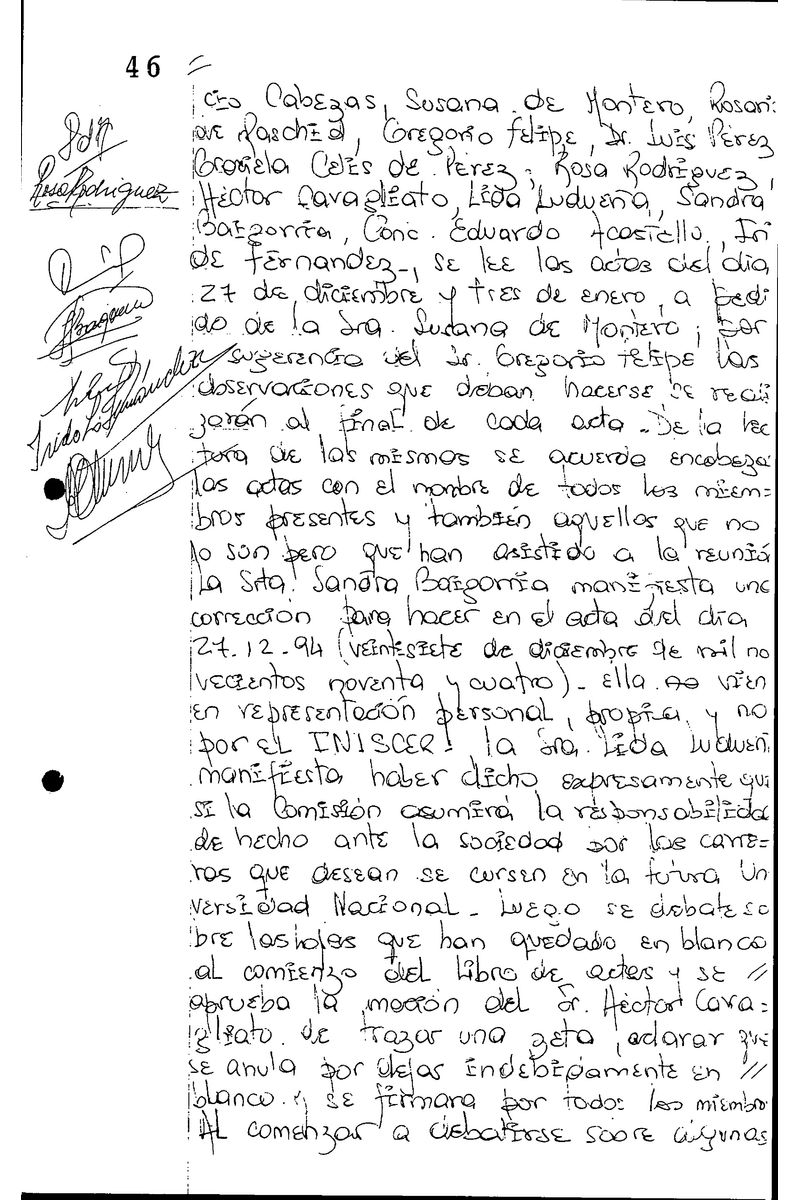 46 //
cio Cabezas, Susana de Montero, Rosari
de Raschid, Gregorio Felipe, Dr. Luis Pérez
Graciela Celis de Perez, Rosa Rodriguez,
Héctor Cavagliato, Lida Ludueña, Sandra
Baigorria, Conc. Eduardo Acostello, Iri
de Fernandez-, se lee las actas del día
27 de diciembre y tres de enero, a pedi
do de la Sra. Susana de Montero, por
sugerencia del Sr. Gregorio Felipe las
observaciones que deban hacerse se reali
zarán al final de cada acta - De la lec
tura de las mismas se acuerda encabeza
las actas con el nombre de todos los miem=
bros presentes y también aquellos que no
lo son pero que han asistido a la reunió
La Srta. Sandra Baigorria manifiesta una
corrección para hacer en el acta del día
27.12.94 (veintisiete de diciembre de mil no
vecientos noventa y cuatro) - ella vien
en representación personal, propia, y no
por el INISCER. la Sra. Lida Ludueñ
manifiesta haber dicho expresamente que
si la Comisión asumirá la responsabilida
de hecho ante la sociedad por las carre=
ras que desean se cursen en la futura Un
versidad Nacional - Luego se debate so
bre las hojas que han quedado en blanco
al comienzo del libro de actas y se //
aprueba la moción del Sr. Héctor Cava=
gliato de trazar una zeta, aclarar que
se anula por dejar indebidamente en //
blanco y se firmara por todos los miembro
Al comenzar a debatirse sobre algunas
Rosa Rodriguez